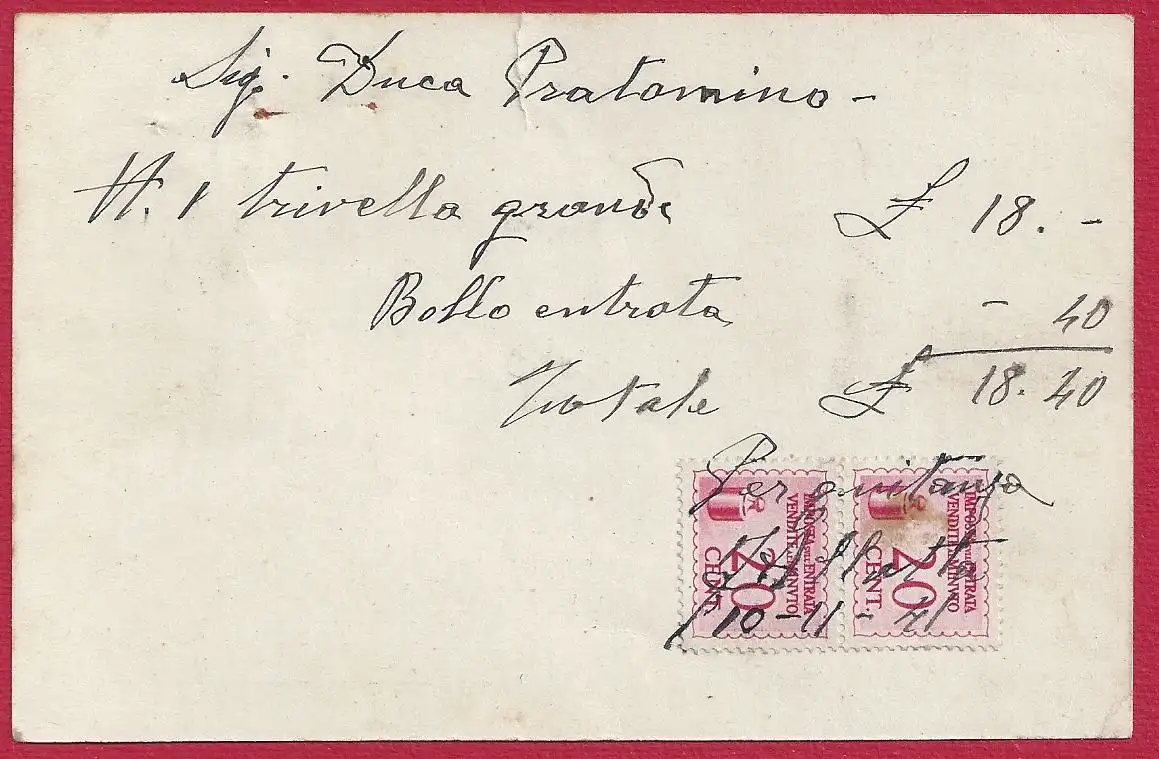 Sig. Duca Pratomino -
N. 1 trivella grande £ 18. -
Bollo entrata - 40
Totale £ 18. 40
Per quitanza
10-11-41
IMPOSTA SULL'ENTRATA
VENDITE AL MINVTO
20
CENT.
IMPOSTA SULL'ENTRATA
VENDITE AL MINVTO
20
CENT.